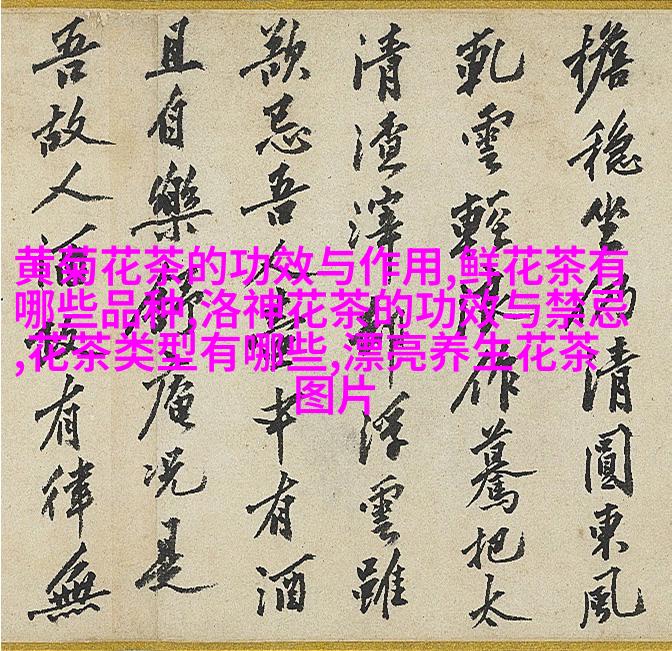 黄菊花茶的功效与作用,鲜花茶有
哪些品种,洛神花茶的功效与禁忌
,花茶类型有哪些,漂亮养生花茶
图片
檐穩坐清圓東風
軋雲輕作驀把太
清渣滓浮雲雖
忌吾中有酒
且自樂庵况是
吾故人有律無